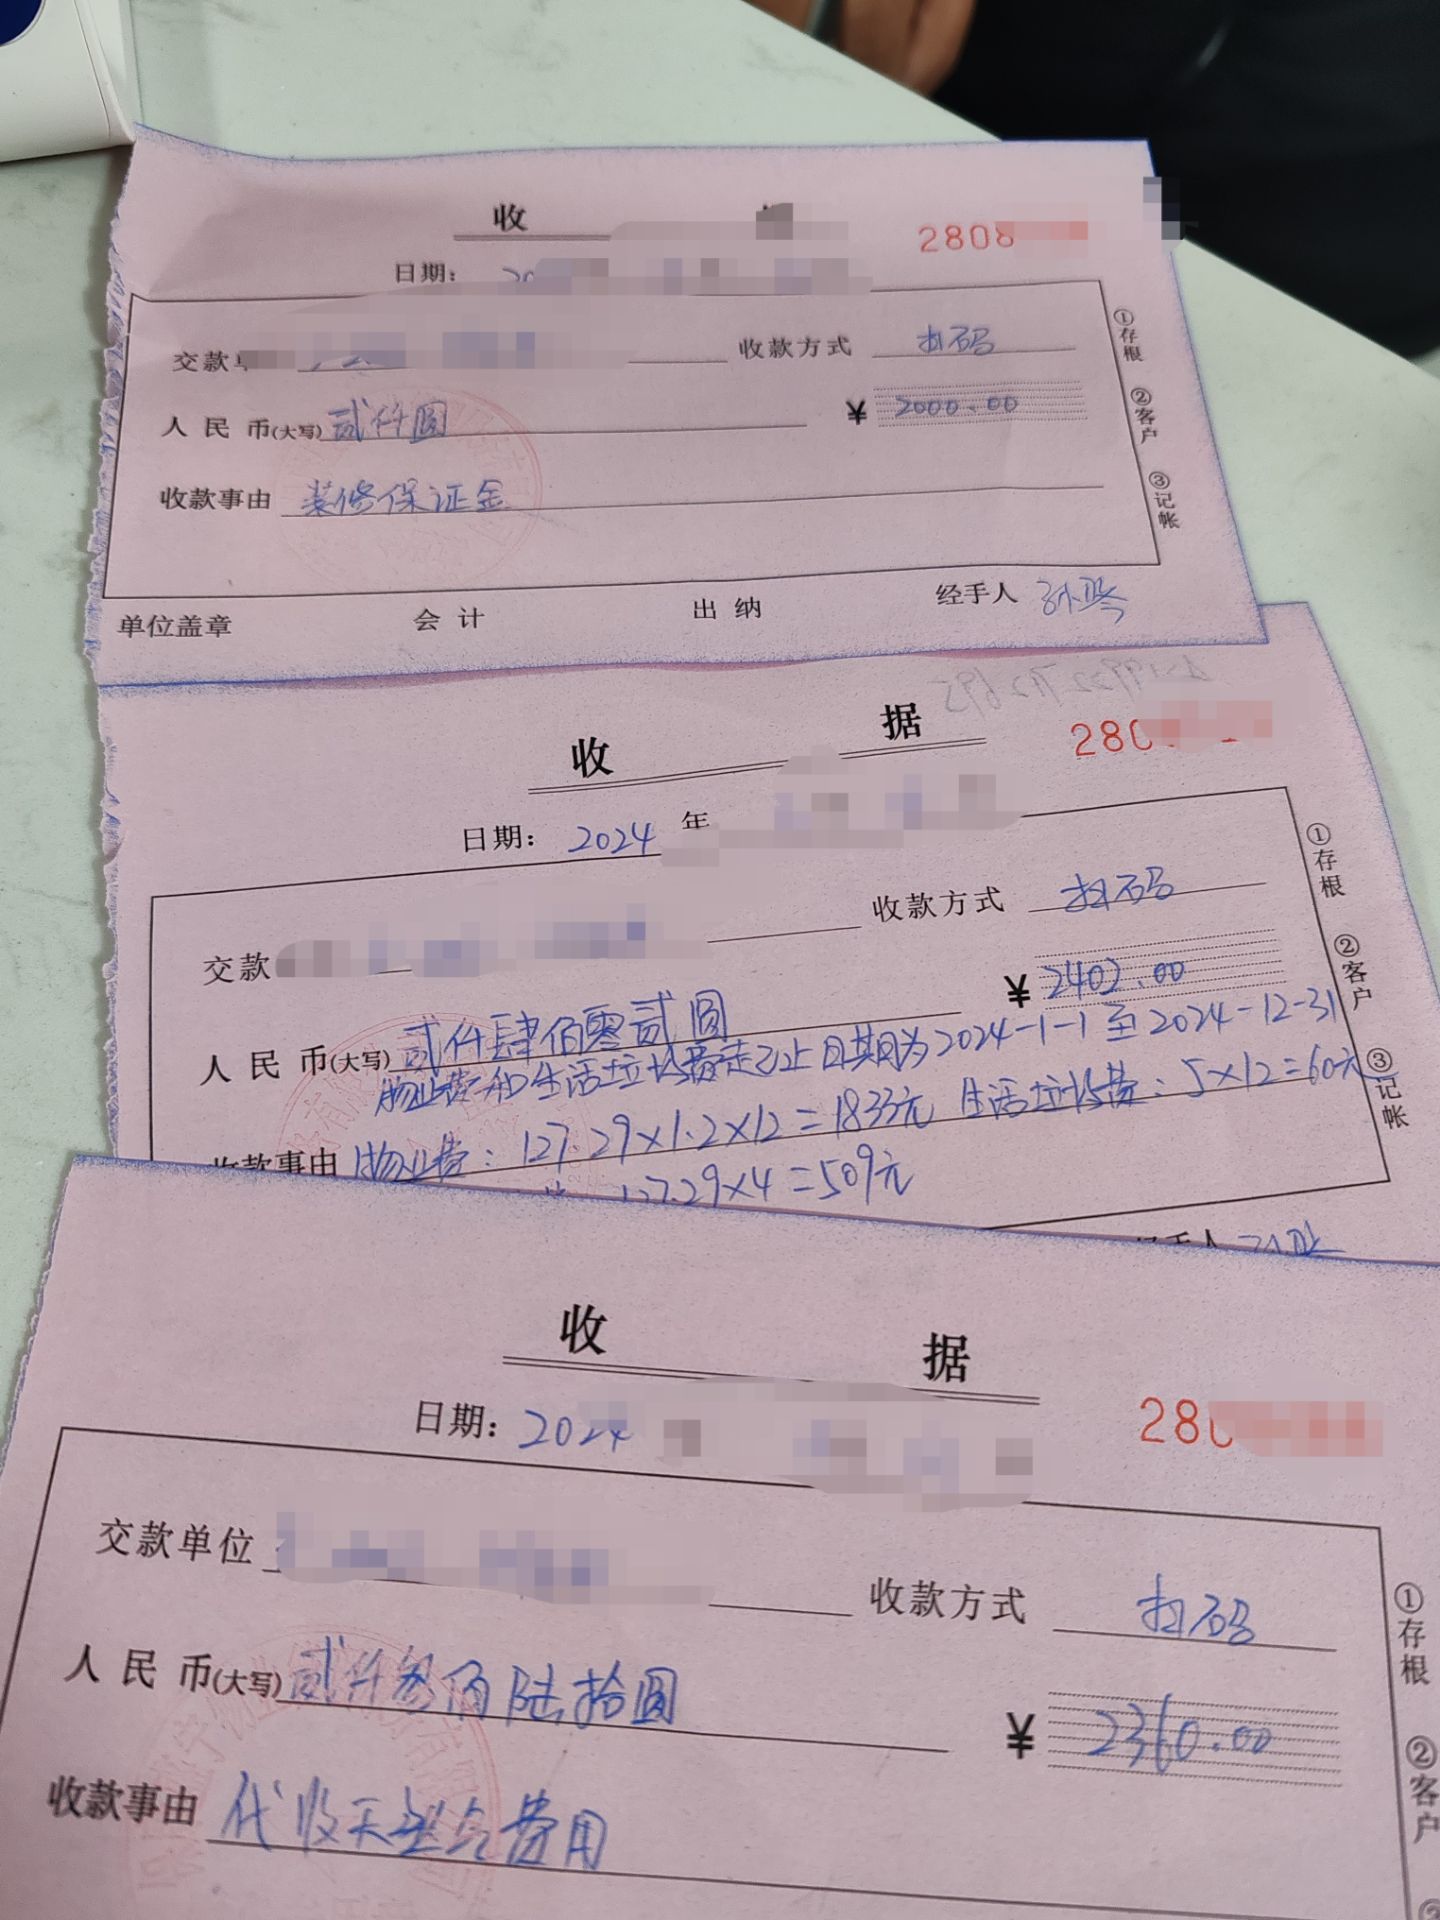 收
2808
日期：
交款
收款方式 扫码
人民币(大写) 贰仟圆 ¥ 2000.00
收款事由 装修保证金
①存根 ②客户 ③记帐
单位盖章 会计 出纳 经手人
收 据
280
日期： 2024 年
交款
收款方式 扫码
人民币(大写) 贰仟肆佰零贰圆 ¥ 2402.00
物业费和生活垃圾费起止日期为2024-1-1至2024-12-31
收款事由 物业费：127.29×1.2×12=1833元 生活垃圾费：5×12=60元
127.29×4=509元
①存根 ②客户 ③记帐
经手人
收 据
28
日期：2024
交款单位
收款方式 扫码
人民币(大写) 贰仟叁佰陆拾圆 ¥ 2360.00
收款事由 代收天然气费用
①存根 ②客户